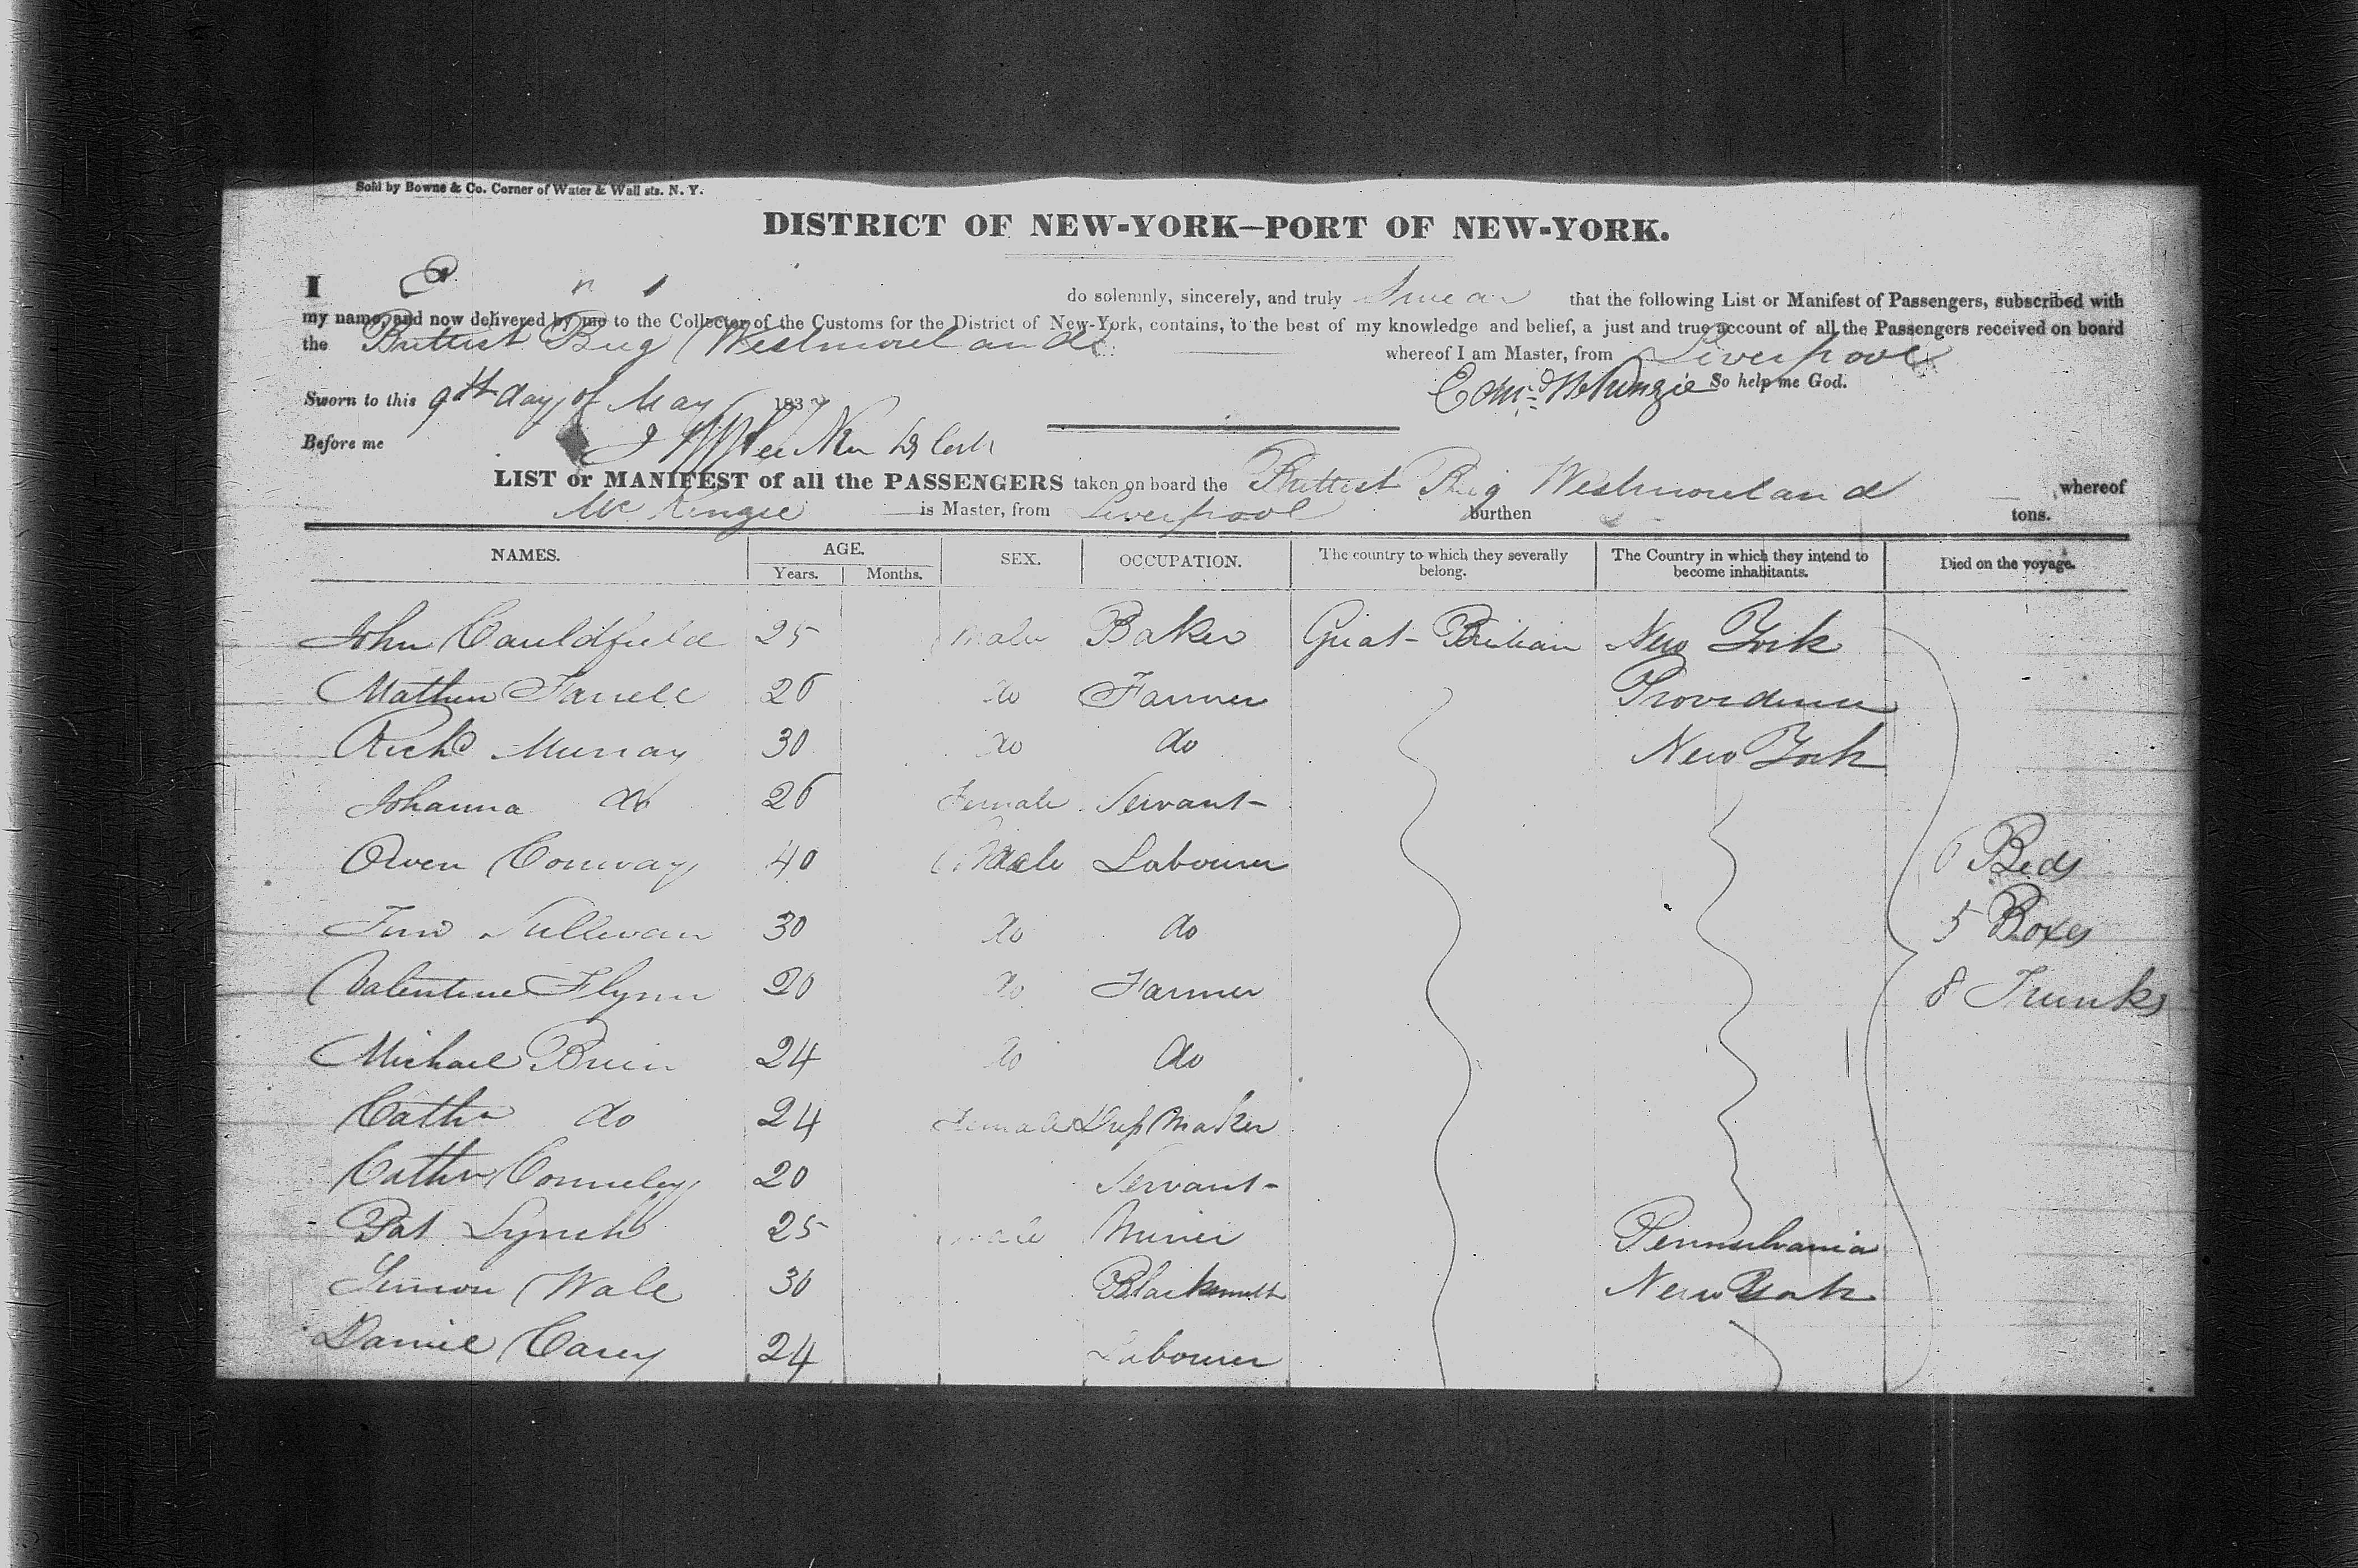 Sold by Bowne & Co. Corner of Water & Wall sts. N. Y.
DISTRICT OF NEW-YORK—PORT OF NEW-YORK.
I do solemnly, sincerely, and truly Swear that the following List or Manifest of Passengers, subscribed with
my name, and now delivered by me to the Collector of the Customs for the District of New-York, contains, to the best of my knowledge and belief, a just and true account of all the Passengers received on board
the Brittish Brig Westmoreland whereof I am Master, from Liverpool
Edmd McKenzie So help me God.
Sworn to this 9th day of May 183
Before me
LIST or MANIFEST of all the PASSENGERS taken on board the Brittish Brig Westmoreland whereof
McKenzie is Master, from Liverpool burthen tons.
NAMES. AGE. Years. Months. SEX. OCCUPATION. The country to which they severally belong. The Country in which they intend to become inhabitants. Died on the voyage.
John Cauldfield 25 Male Baker Great-Britian New York
Mathew Farrell 26 do Farmer Providence
Richd Murray 30 do do New York
Johanna do 26 Female Servant
Owen Conway 40 Male Labourer 6 Beds
Tim Sullivan 30 do do 5 Boxes
Valentine Flynn 20 do Farmer 8 Trunks
Michael Brien 24 do do
Cathn do 24 Female Dress Maker
Cathn Conneley 20 Servant
Pat Lynch 25 Male Miner Pennsylvania
Simon Wale 30 Blacksmith New York
Daniel Carey 24 Labourer